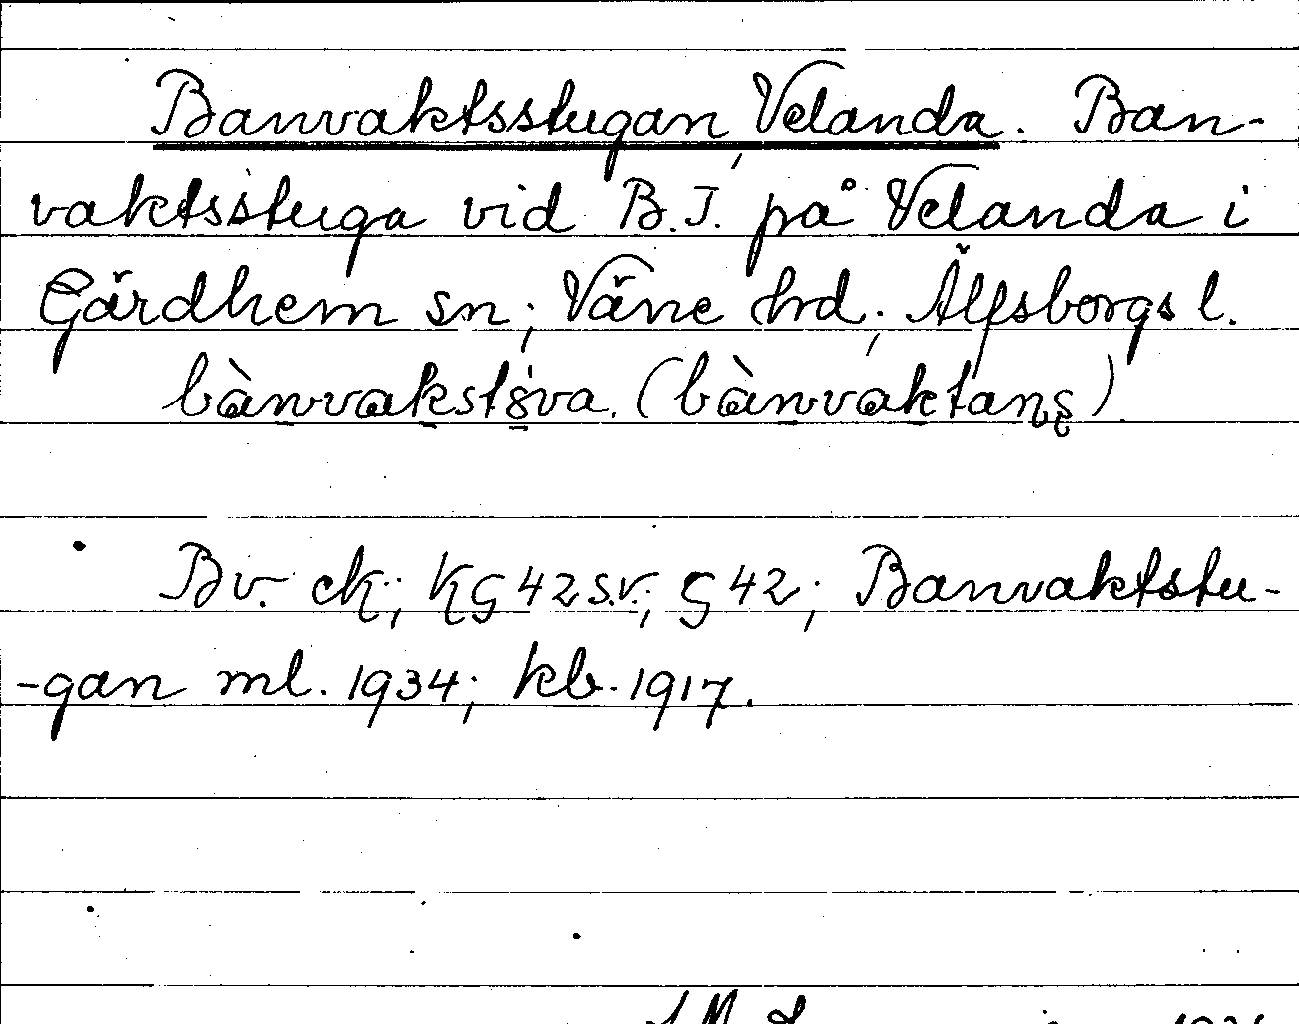 Banvaktsstugan, Velanda. Ban-
vaktsstuga vid B.J. på Velanda i
Gärdhem sn; Väne hd; Älfsborgs l.
bànvakstòva. (bànvaktans)
Bv. ek; KG 42 s.v; G 42; Banvaktstu-
-gan ml. 1934; kb. 1917.